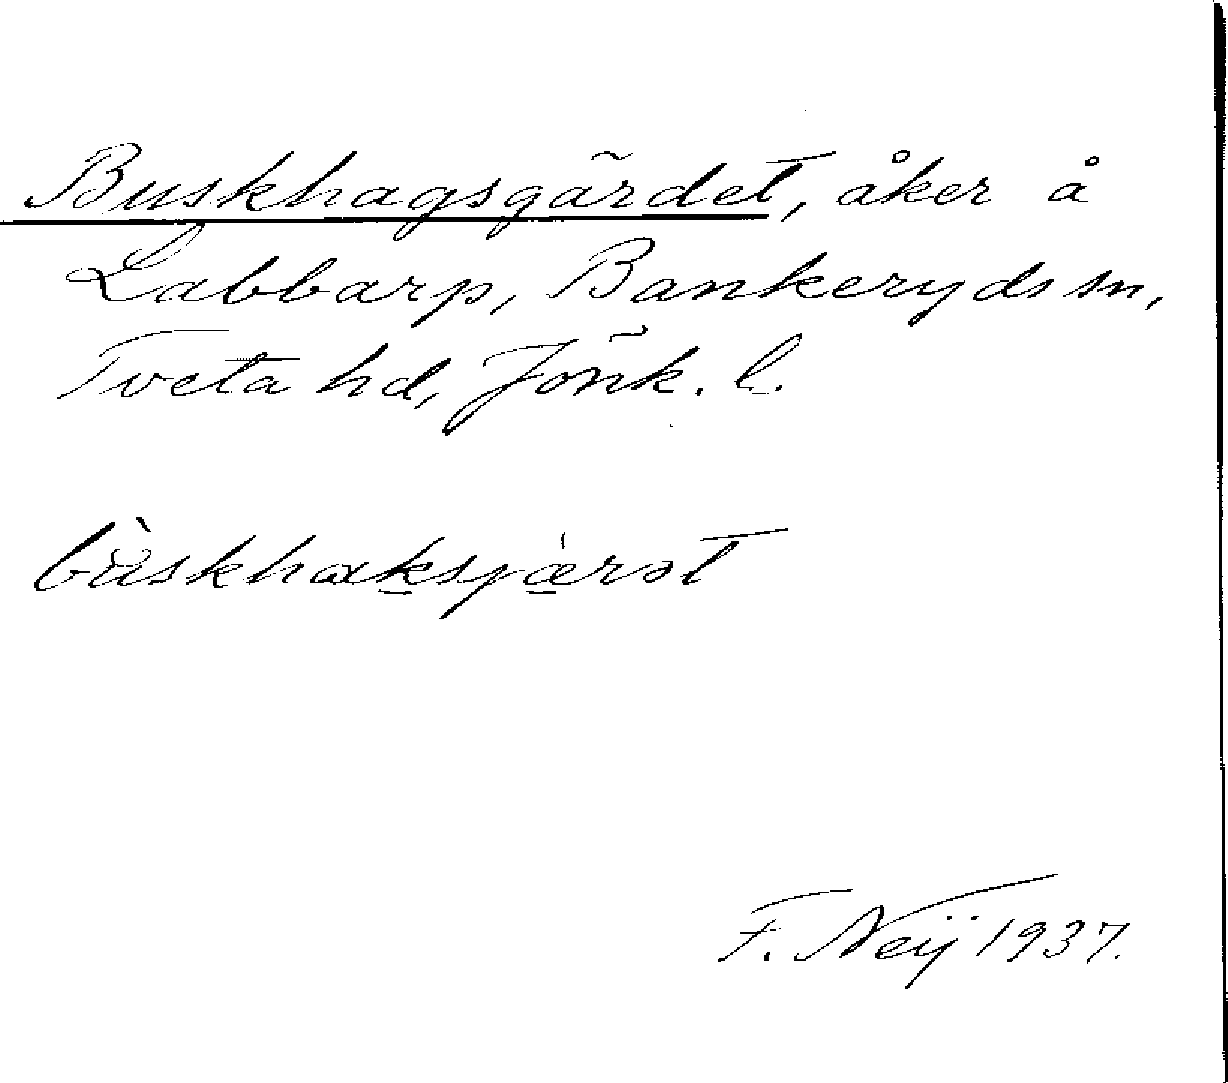 Buskhagsgärdet, åker å
Labbarp, Bankeryds sn,
Tveta hd, Jönk. l.
bùskhaksjærət
F. Neij 1937.